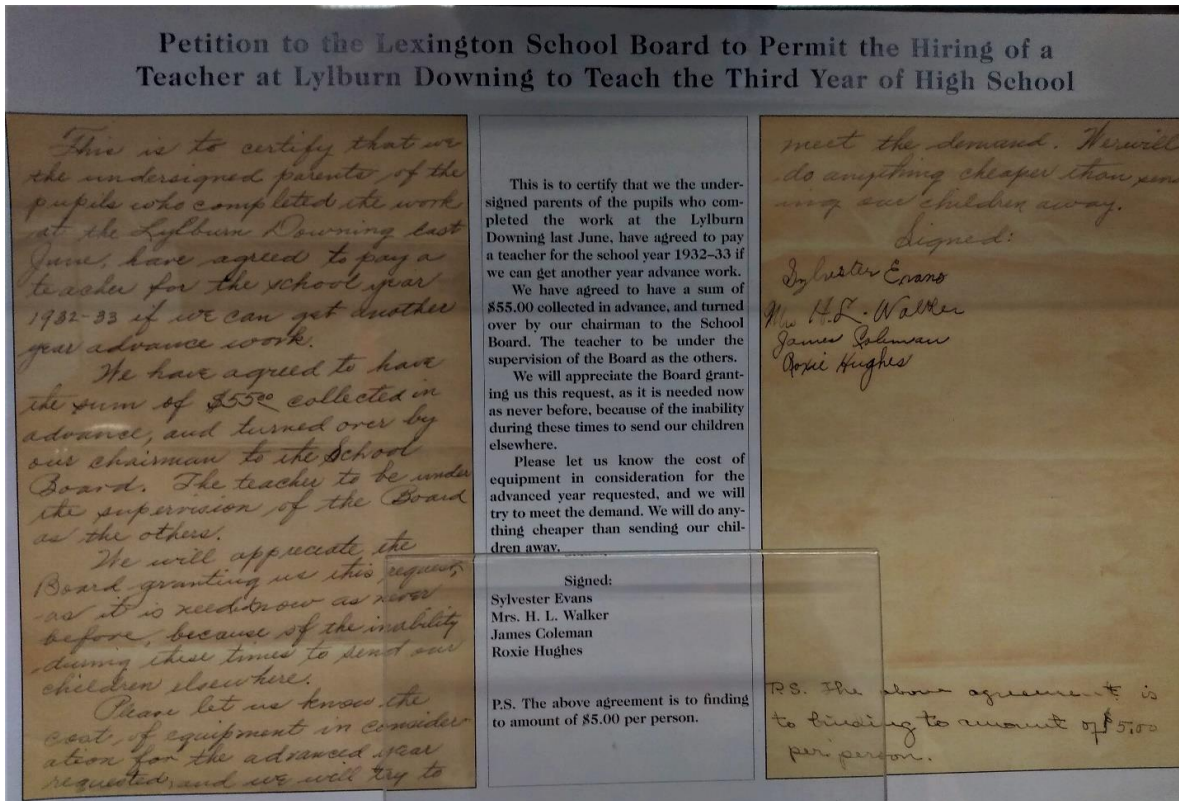 Petition to the Lexington School Board to Permit the Hiring of a
Teacher at Lylburn Downing to Teach the Third Year of High School
This is to certify that we
the undersigned parents of the
pupils who completed the work
at the Lylburn Downing last
June, have agreed to pay a
teacher for the school year
1932-33 if we can get another
year advance work.
We have agreed to have
the sum of $55.00 collected in
advance, and turned over by
our chairman to the School
Board. The teacher to be under
the supervision of the Board
as the others.
We will appreciate the
Board granting us this request,
as it is needed now as never
before, because of the inability
during these times to send our
children elsewhere.
Please let us know the
cost of equipment in consider
ation for the advanced year
requested, and we will try to
This is to certify that we the under-
signed parents of the pupils who com-
pleted the work at the Lylburn
Downing last June, have agreed to pay
a teacher for the school year 1932–33 if
we can get another year advance work.
We have agreed to have a sum of
$55.00 collected in advance, and turned
over by our chairman to the School
Board. The teacher to be under the
supervision of the Board as the others.
We will appreciate the Board grant-
ing us this request, as it is needed now
as never before, because of the inability
during these times to send our children
elsewhere.
Please let us know the cost of
equipment in consideration for the
advanced year requested, and we will
try to meet the demand. We will do any-
thing cheaper than sending our chil-
dren away.
Signed:
Sylvester Evans
Mrs. H. L. Walker
James Coleman
Roxie Hughes
P.S. The above agreement is to finding
to amount of $5.00 per person.
meet the demand. We will
do anything cheaper than send
ing our children away.
Signed:
Sylvester Evans
Mrs H. L. Walker
James Coleman
Roxie Hughes
P.S. The above agreement is
to binding to amount of $5.00
per person.